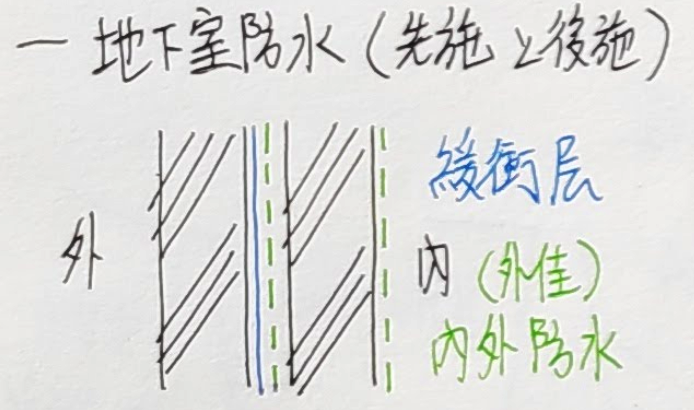 一 地下室防水 (先施と後施)
緩衝层
外
内 (外佳)
内外防水